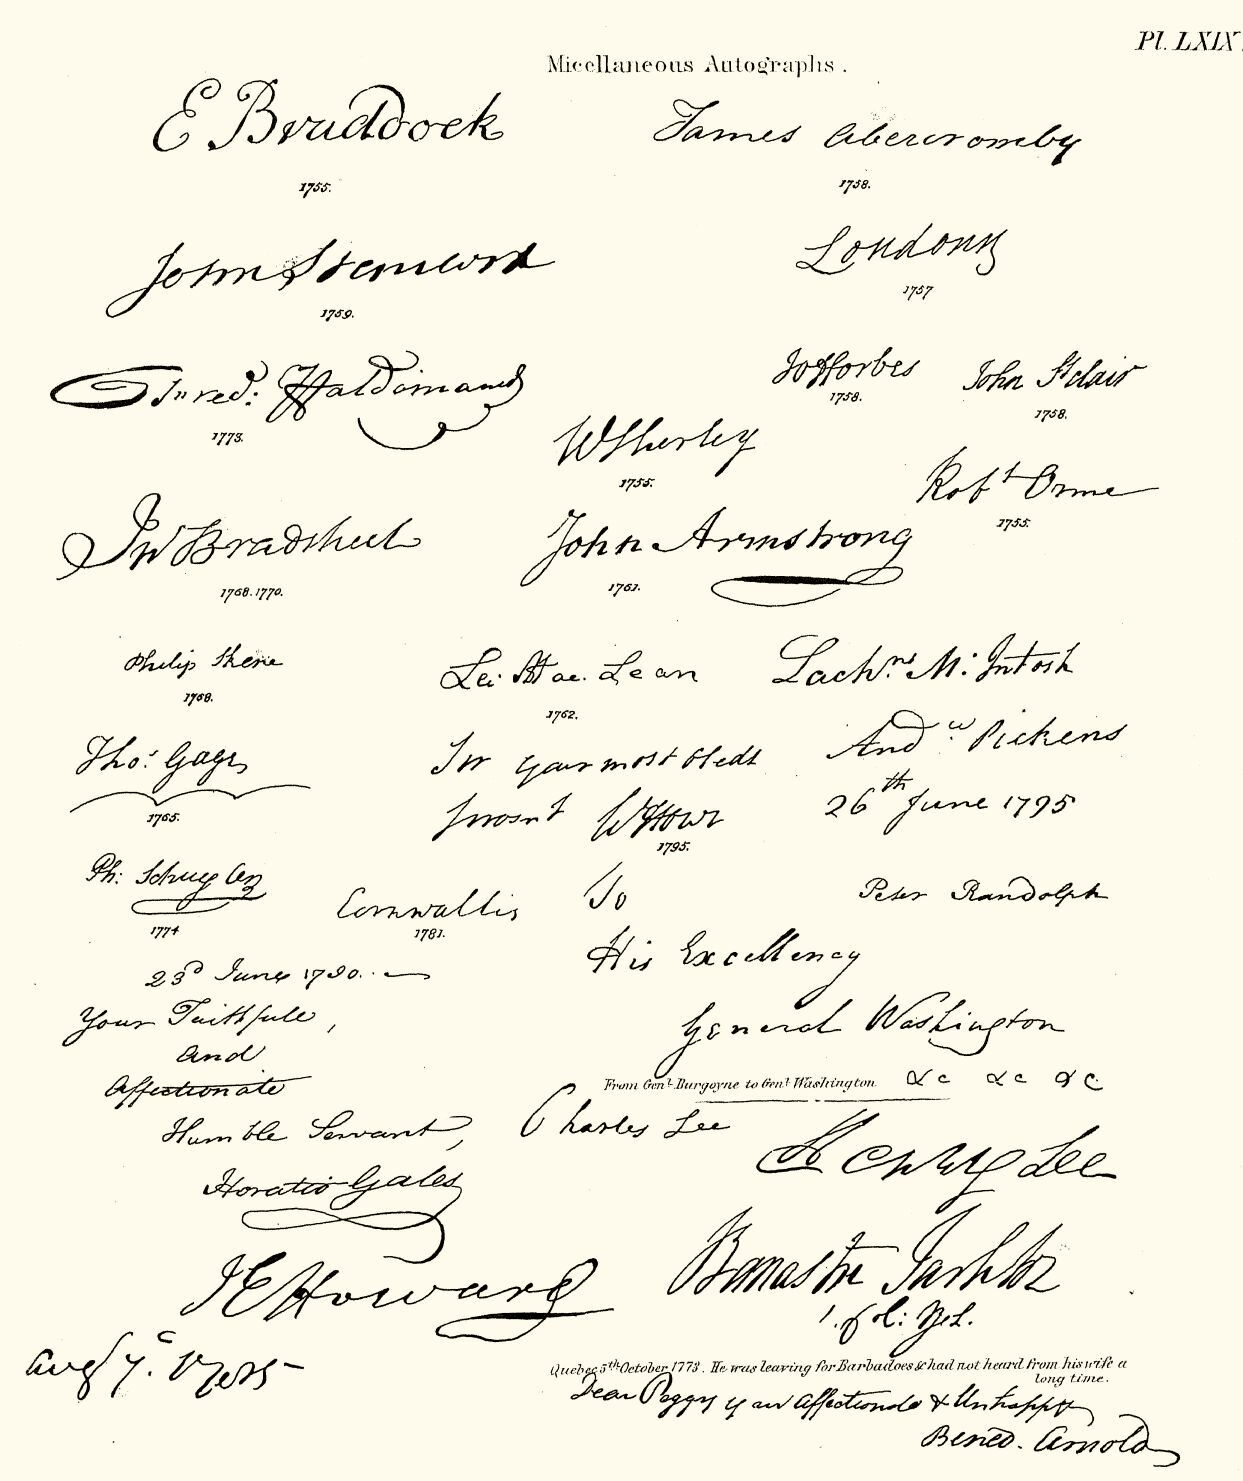 Pl. LXIX.
Micellaneous Autographs.
E Braddock
1755.
James Abercromby
1758.
John Stanwix
1759.
Loudoun
1757
Fred: Haldimand
1773.
Jo Forbes
1758.
John St Clair
1758.
W Shirley
1755.
Robt Orme
1755.
Jno Bradstreet
1768. 1770.
John Armstrong
1761.
Philip Skene
1768.
Mac. Lean
1762.
Lachn. Mc Intosh
Thos. Gage
1765.
Sir your most Obedt
Servt W Howe
1795.
Andw Pickens
26th June 1795
Ph: Schuyler
1774
Cornwallis
1781.
Peter Randolph
23d June 1790.
Your Faithfull,
and
Affectionate
Humble Servant,
Horatio Gates
To
His Excellency
General Washington
&c &c &c
From Genl. Burgoyne to Genl. Washington
Charles Lee
Henry Lee
J E Howard
Banastre Tarleton
Quebec 5th October 1773. He was leaving for Barbadoes & had not heard from his wife a
long time.
Dear Peggy yr Affectionate & Unhappy
Bened. Arnold